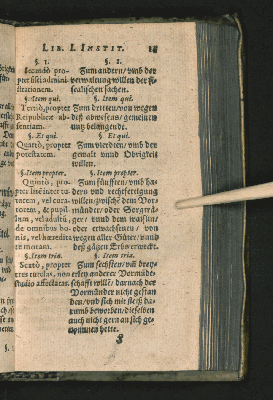 LIB. I. INSTIT.
§. 1.
§. 1.
Secundò pro-
pter fisci admini-
strationem.
Zum andern / vmb der
verwaltung willen der fi-
scalischen sachen.
§. Item qui.
§. Item qui.
Tertiò, propter
Reipublicæ ab-
sentiam.
Zum dritten / von wegen
deß abwesens / gemeinen
nutz belangende.
§. Et qui.
§. Et qui.
Quartò, propter
potestatem.
Zum vierdten / vmb der
gewalt vnnd Obrigkeit
willen.
§. Item propter.
§. Item propter.
Quintò, pro-
pter litem inter tu-
torem, vel cura-
torem, & pupil-
lum, vel adultũ,
de omnibus bo-
nis, vel hæredita-
te motam.
Zum fünfften / vmb ha-
ders vnd rechtfertigung
willen / zwischẽ dem Vor-
mündẽr / oder Sorgträ-
ger / vnnd dem waisen /
oder erwachsenen / von
wegen aller Güter / vnnd
deß gãtzen Erbs erweckt.
§. Item tria.
§. Item tria.
Sextò, propter
tres tutelas, non
studio affectatas.
Zum sechsten / vm̃ drey-
erley anderer Vormünd-
schafft wille / darnach der
Vormünder nicht gestan-
den / vnd sich mit fleiß da-
rumb beworben / dieselben
auch nicht gern an sich ge-
nommen hette.